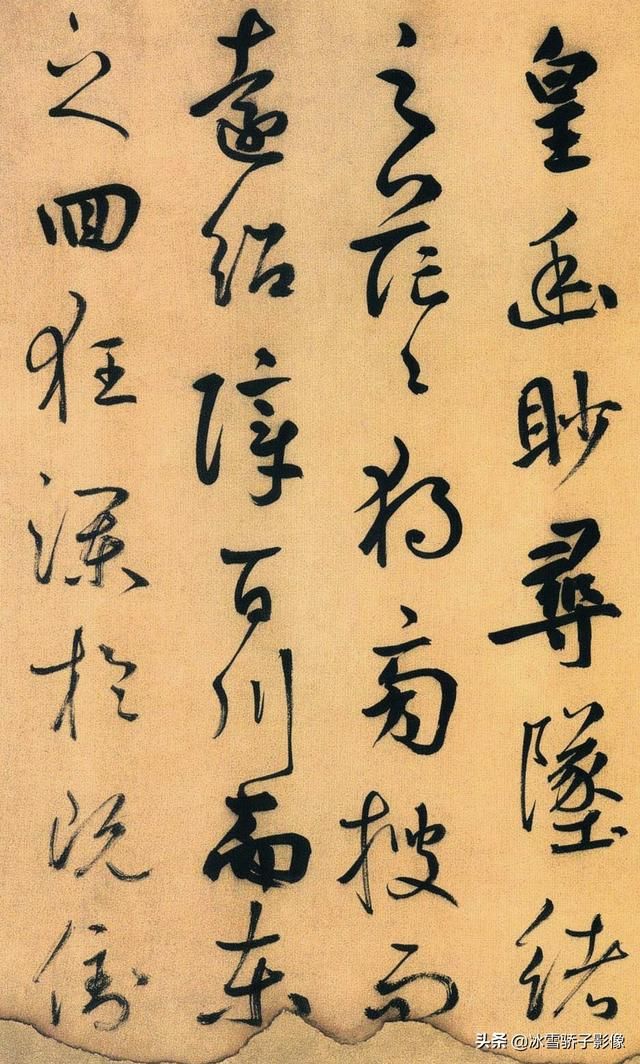 皇幽眇尋墜緒
之茫々獨旁搜而
遠紹障百川而東
之回狂瀾於既倒
头条 @冰雪骄子影像